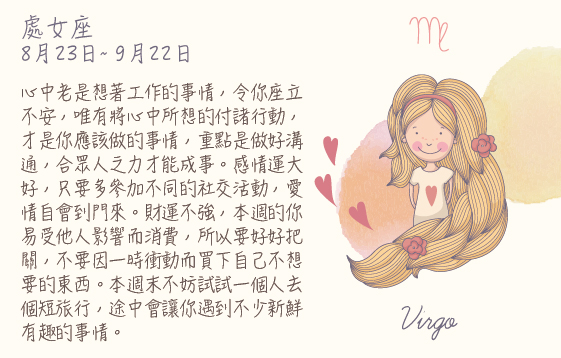 處女座
8月23日~9月22日
心中老是想著工作的事情，令你座立
不安，唯有將心中所想的付諸行動，
才是你應該做的事情，重點是做好溝
通，合眾人之力才能成事。感情運大
好，只要多參加不同的社交活動，愛
情自會到門來。財運不強，本週的你
易受他人影響而消費，所以要好好把
關，不要因一時衝動而買下自己不想
要的東西。本週末不妨試試一個人去
個短旅行，途中會讓你遇到不少新鮮
有趣的事情。
Virgo